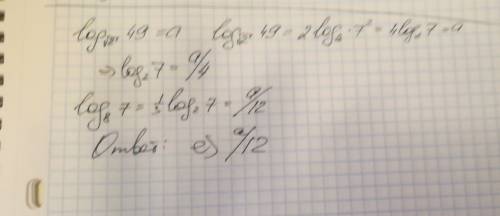 log_√2 49 = a   log_√2 49 = 2 log_2 7² = 4 log_2 7 = a
⇒ log_2 7 = a/4
log_8 7 = 1/3 log_2 7 = a/12
Ответ: e) a/12